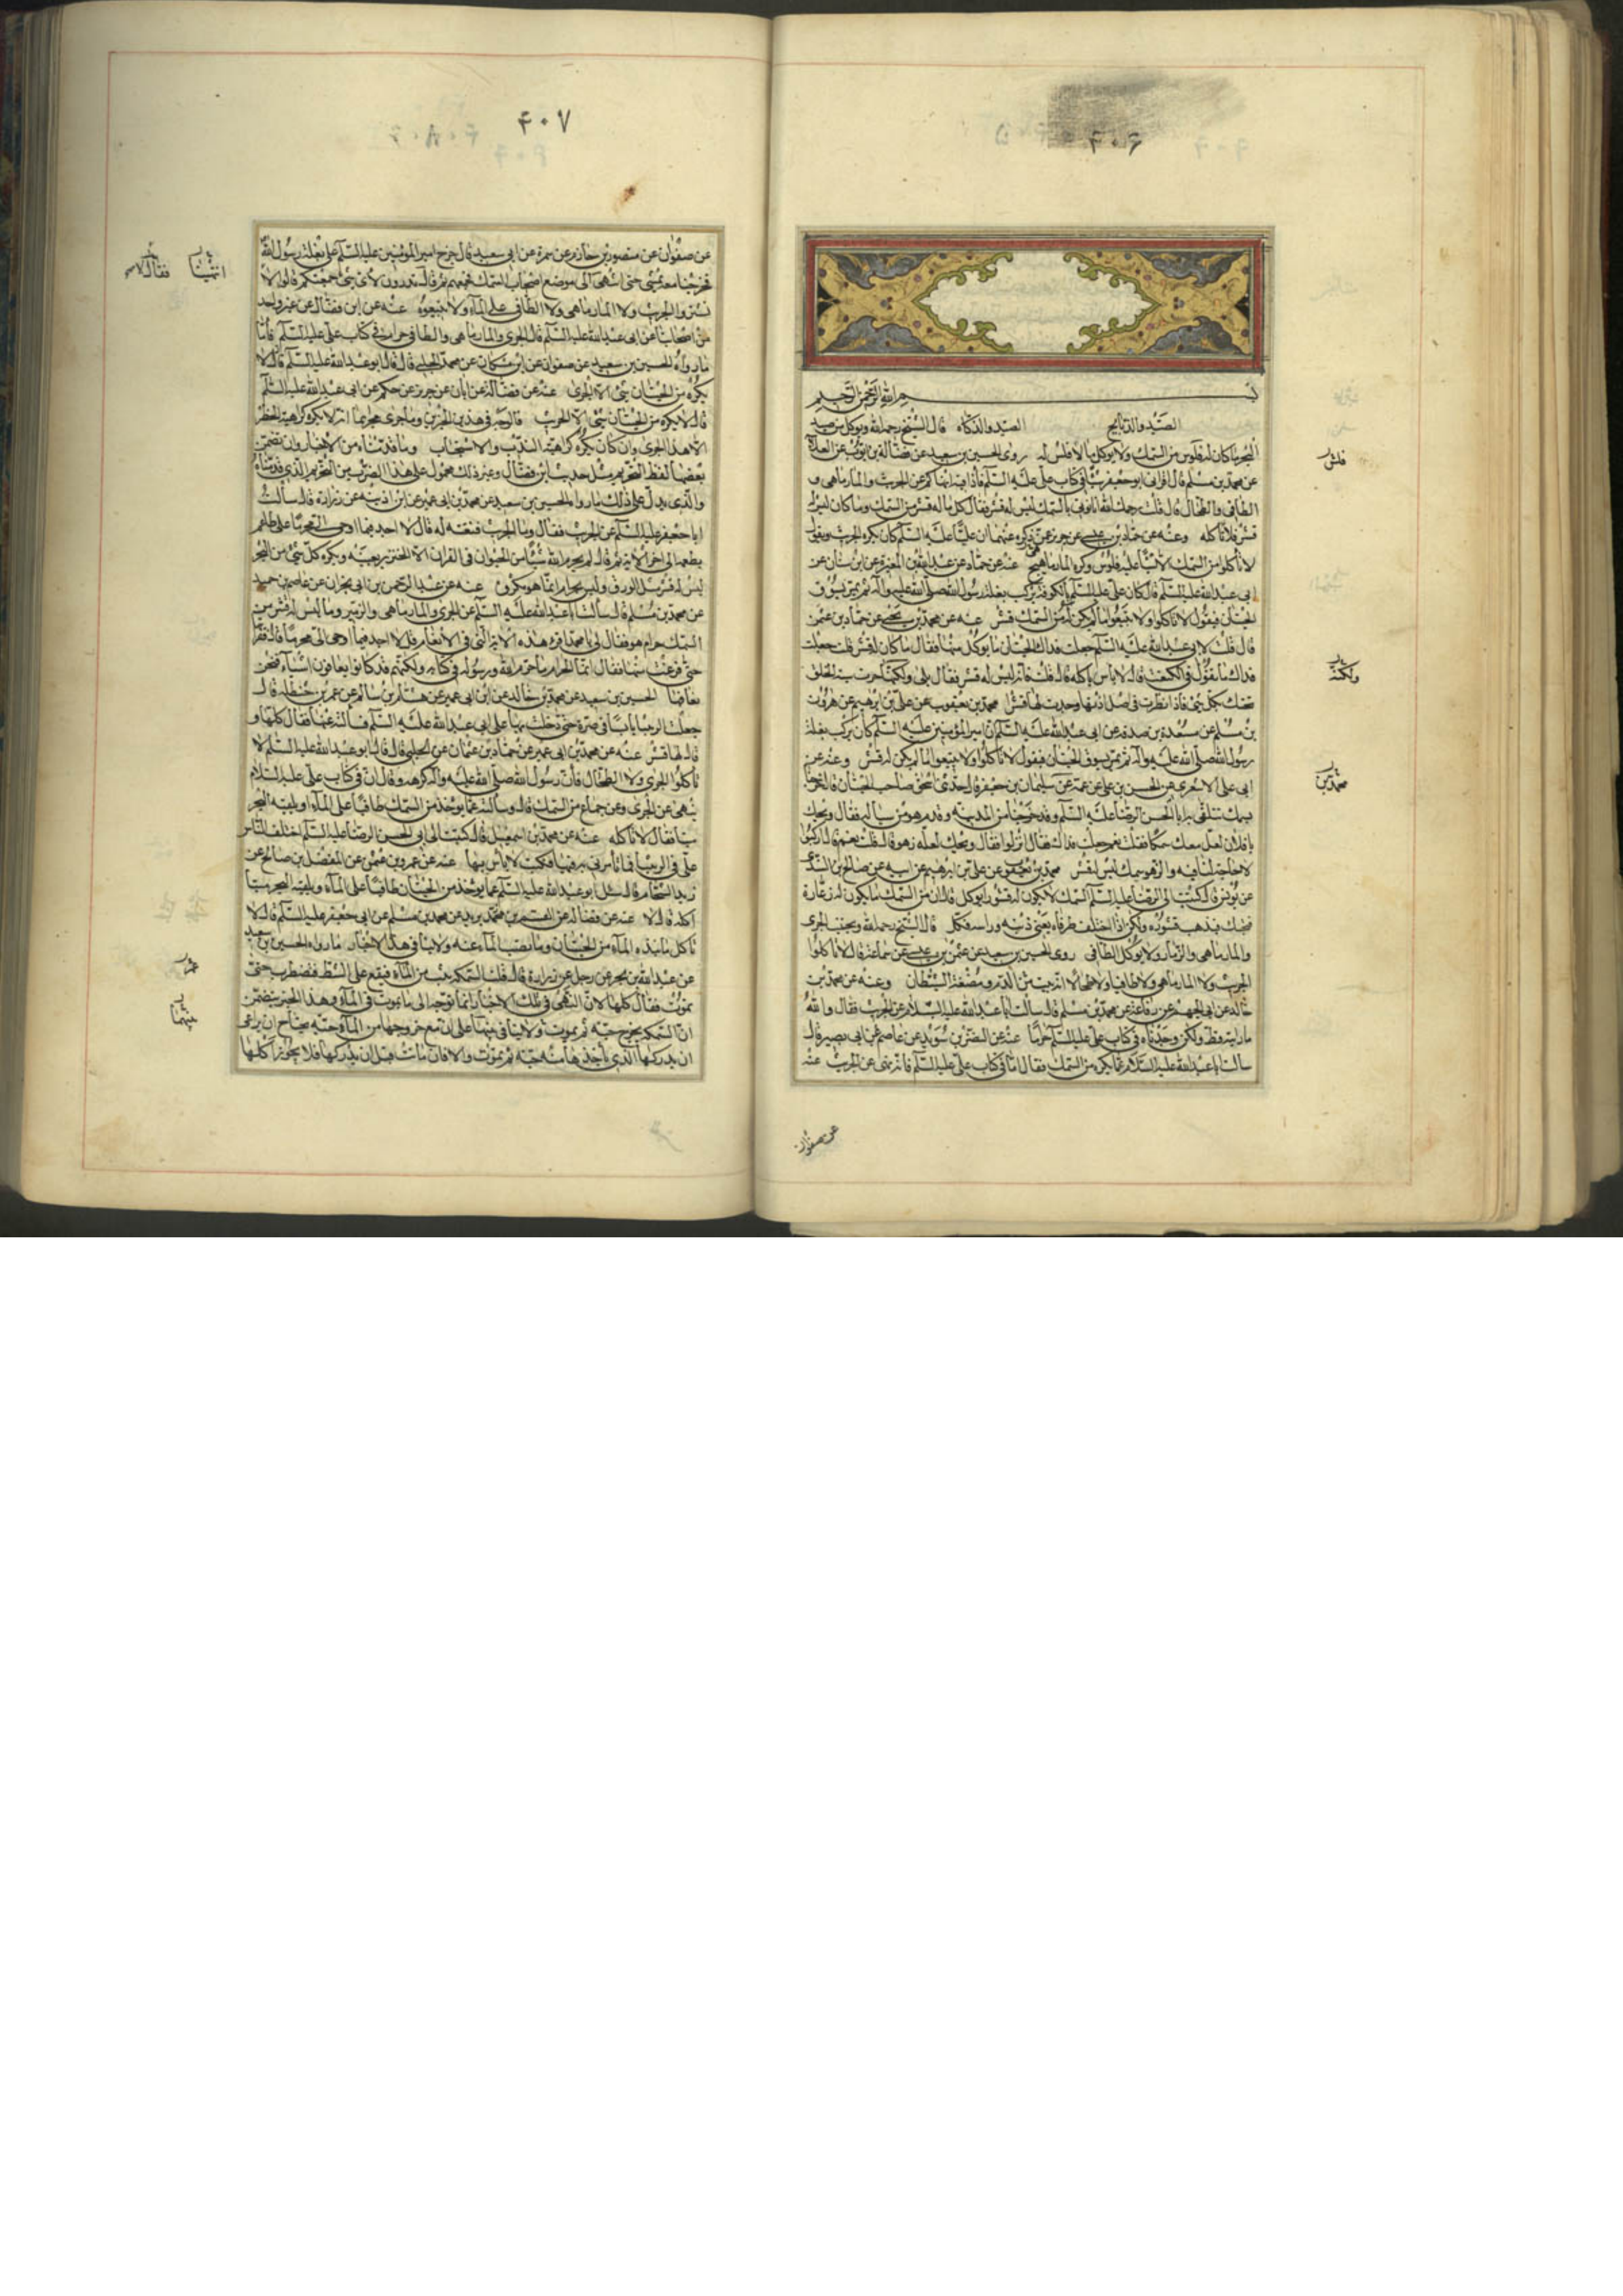 ۴۰۶
بسم الله الرحمن الرحيم
الصيد والذبايح الصيد والذكاة قال الشيخ رحمه الله ويؤكل من صيد
البحر ما كان له فلوس من السمك ولا يؤكل ما لا فلس له روى الحسين بن سعيد عن فضالة بن ايوب عن العلا
عن محمد بن مسلم قال اقراني ابو جعفر شيئا في كتاب علي عليه السلم فاذا فيه انهاكم عن الجريث والمارماهي و
الطافي والطحال قال قلت رحمك الله انا نؤتى بالسمك ليس له قشر فقال كل ما له قشر من السمك وما كان ليس له
قشر فلا تاكله وعنه عن حماد بن عيسى عن حريز عمن ذكره عنهما ان عليا عليه السلم كان يكره الجريث ويقول
لا تاكلوا من السمك الا شيئا عليه فلوس وكره المارماهي عنه عن حماد عن عبد الله بن المغيرة عن ابن سنان عن
ابي عبد الله عليه السلم قال كان علي عليه السلم بالكوفة يركب بغلة رسول الله صلى الله عليه وآله ثم يمر بسوق
الحيتان فيقول لا تاكلوا ولا تبيعوا ما لم يكن له من السمك قشر عنه عن محمد بن يحيى عن حماد بن عثمن
قال قلت لابي عبد الله عليه السلم جعلت فداك الحيتان ما يؤكل منها فقال ما كان له قشر قلت جعلت
فداك ما تقول في الكنعت قال لا باس باكله قال قلت فانه ليس له قشر فقال بلى ولكنها حوت سيئة الخلق
تحتك بكل شئ فاذا نظرت في اصل اذنها وجدت لها قشرا محمد بن يعقوب عن علي بن ابرهيم عن هرون
بن مسلم عن مسعدة بن صدقة عن ابي عبد الله عليه السلم ان امير المؤمنين عليه السلم كان يركب بغلة
رسول الله صلى الله عليه وآله ثم يمر بسوق الحيتان فيقول لا تاكلوا ولا تبيعوا ما لم يكن له قشر وعنه عن
ابي علي الاشعري عن الحسن بن علي عن عمه عن سليمان بن جعفر قال حدثني اسحق صاحب الحيتان قال خرجنا
بسمك نتلقى به ابا الحسن الرضا عليه السلم وقد خرجنا من المدينة وقدم هو من سيالة فقال ويحك
يا فلان لعل معك سمكا فقلت نعم جعلت فداك فقال انزلوا فقال ويحك لعله زهو قال قلت نعم قال اركبوا
لا حاجة لنا فيه والزهو سمك ليس له قشر محمد بن يعقوب عن علي بن ابرهيم عن ابيه عن صالح بن السندي
عن يونس قال كتبت الى الرضا عليه السلم السمك لا يكون له قشور ايؤكل قال ان من السمك ما يكون له زعارة
فيحتك فيذهب قشوره ولكن اذا اختلف طرفاه يعني ذنبه وراسه فكل قال الشيخ رحمه الله ويجتنب الجري
والمارماهي والزمار ولا يؤكل الطافي روى الحسين بن سعيد عن عثمن بن عيسى عن سماعة قال لا تاكلوا
الجريث ولا المارماهي ولا طافيا ولا طحالا لانه بيت من الدم ومضغة الشيطان وعنه عن محمد بن
خالد عن ابي الجهم عن رفاعة عن محمد بن مسلم قال سالت ابا عبد الله عليه السلام عن الجريث فقال والله
ما رايته قط ولكن وجدناه في كتاب علي عليه السلم حراما عنه عن النضر بن سويد عن عاصم عن ابي بصير قال
سالت ابا عبد الله عليه السلام عما يكره من السمك فقال اما في كتاب علي عليه السلم فانه نهى عن الجريث عنه
عن صفوان
فلس
ولكنه
محمد بن
۴۰۷
عن صفوان عن منصور بن حازم عن سمرة عن ابي سعيد قال خرج امير المؤمنين عليه السلم على بغلة رسول الله
فخرجنا معه نمشي حتى انتهى الى موضع اصحاب السمك فجمعهم ثم قال تدرون لاي شئ جمعتكم قالوا لا
تشتروا الجريث ولا المارماهي ولا الطافي على الماء ولا تبيعوه عنه عن ابن فضال عن غير واحد
من اصحابنا عن ابي عبد الله عليه السلم قال الجري والمارماهي والطافي حرام في كتاب علي عليه السلم فاما
ما رواه الحسين بن سعيد عن صفوان عن ابن مسكان عن محمد الحلبي قال قال ابو عبد الله عليه السلم قال لا
يكره من الحيتان شئ الا الجري عنه عن فضالة عن ابان عن حريز عن حكم عن ابي عبد الله عليه السلم
قال لا يكره من الحيتان شئ الا الجريث فالوجه في هذين الخبرين وما جرى مجريهما انه لا يكره كراهية الحظر
الا هذا الجري وان كان يكره كراهية الندب والاستحباب وما قدمناه من الاخبار وان تضمن
بعضها لفظ التحريم مثل حديث ابن فضال وغير ذلك محمول على هذا الضرب من التحريم الذي قدمناه
والذي يدل على ذلك ما رواه الحسين بن سعيد عن محمد بن ابي عمير عن ابن اذينة عن زرارة قال سالت
ابا جعفر عليه السلم عن الجريث فقال وما الجريث فنعته له فقال لا اجد فيما اوحي الي محرما على طاعم
يطعمه الى اخر الاية ثم قال لم يحرم الله شيئا من الحيوان في القران الا الخنزير بعينه ويكره كل شئ من البحر
ليس له قشر مثل الورق وليس بحرام انما هو مكروه عنه عن عبد الرحمن بن ابي نجران عن عاصم بن حميد
عن محمد بن مسلم قال سالت ابا عبد الله عليه السلم عن الجري والمارماهي والزمير وما ليس له قشر من
السمك حرام هو فقال لي يا محمد اقرء هذه الاية التي في الانعام قل لا اجد فيما اوحي الي محرما قال فقراتها
حتى فرغت منها فقال انما الحرام ما حرم الله ورسوله في كتابه ولكنهم قد كانوا يعافون اشياء فنحن
نعافها الحسين بن سعيد عن محمد بن خالد عن ابن ابي عمير عن هشام بن سالم عن عمر بن حنظلة قال
حملت الربيثا يابسا في صرة حتى دخلت بها على ابي عبد الله عليه السلم فسالته عنها فقال كلها و
قال لها قشر عنه عن محمد بن ابي عمير عن حماد بن عثمان عن الحلبي قال قال ابو عبد الله عليه السلم لا
تاكلوا الجري ولا الطحال فان رسول الله صلى الله عليه وآله كرهه وقال ان في كتاب علي عليه السلام
ينهى عن الجري وعن جماع من السمك قال وسالته عما يوخذ من السمك طافيا على الماء او يلقيه البحر
ميتا فقال لا تاكله عنه عن محمد بن اسمعيل قال كتبت الى ابي الحسن الرضا عليه السلم اختلف الناس
علي في الربيثا فما تامرني به فيها فكتب لا باس بها عنه عن عمرو بن عثمن عن المفضل بن صالح عن
زيد الشحام قال سئل ابو عبد الله عليه السلم عما يوخذ من الحيتان طافيا على الماء ويلقيه البحر ميتا
اكله قال لا عنه عن فضالة عن القسم بن بريد عن محمد بن مسلم عن ابي جعفر عليه السلم قال لا
تاكل ما نبذه الماء من الحيتان وما نضب الماء عنه ولا ينافي هذا الاخبار ما رواه الحسين بن سعيد
عن عبد الله بن بحر عن رجل عن زرارة قال قلت السمكة تثب من الماء فتقع على الشط فتضطرب حتى
تموت فقال كلها لان النهي في تلك الاخبار انما توجه الى ما يموت في الماء وهذا الخبر يتضمن
ان السمكة تخرج حية ثم تموت ولا ينافي بينهما على ان مع خروجها من الماء حية يحتاج ان يراعى
ان يدركها الذي ياخذها منه حية ثم تموت والا فان ماتت قبل ان يدركها فلا يجوز اكلها